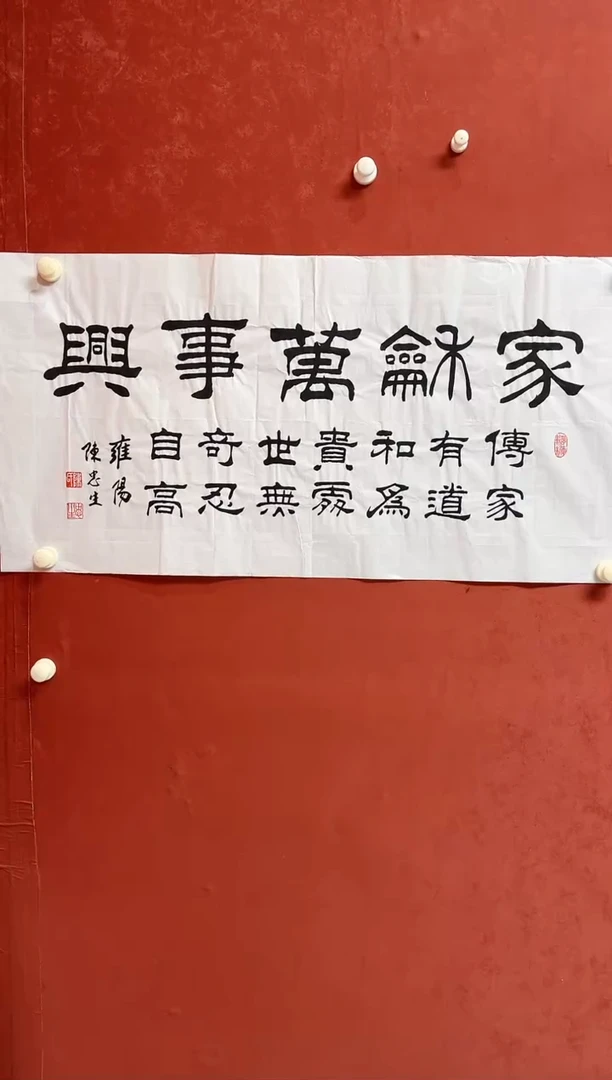 家龢萬事興
傳家
有道
和爲
貴處
世無
奇忍
自高
雍陽
陳忠生